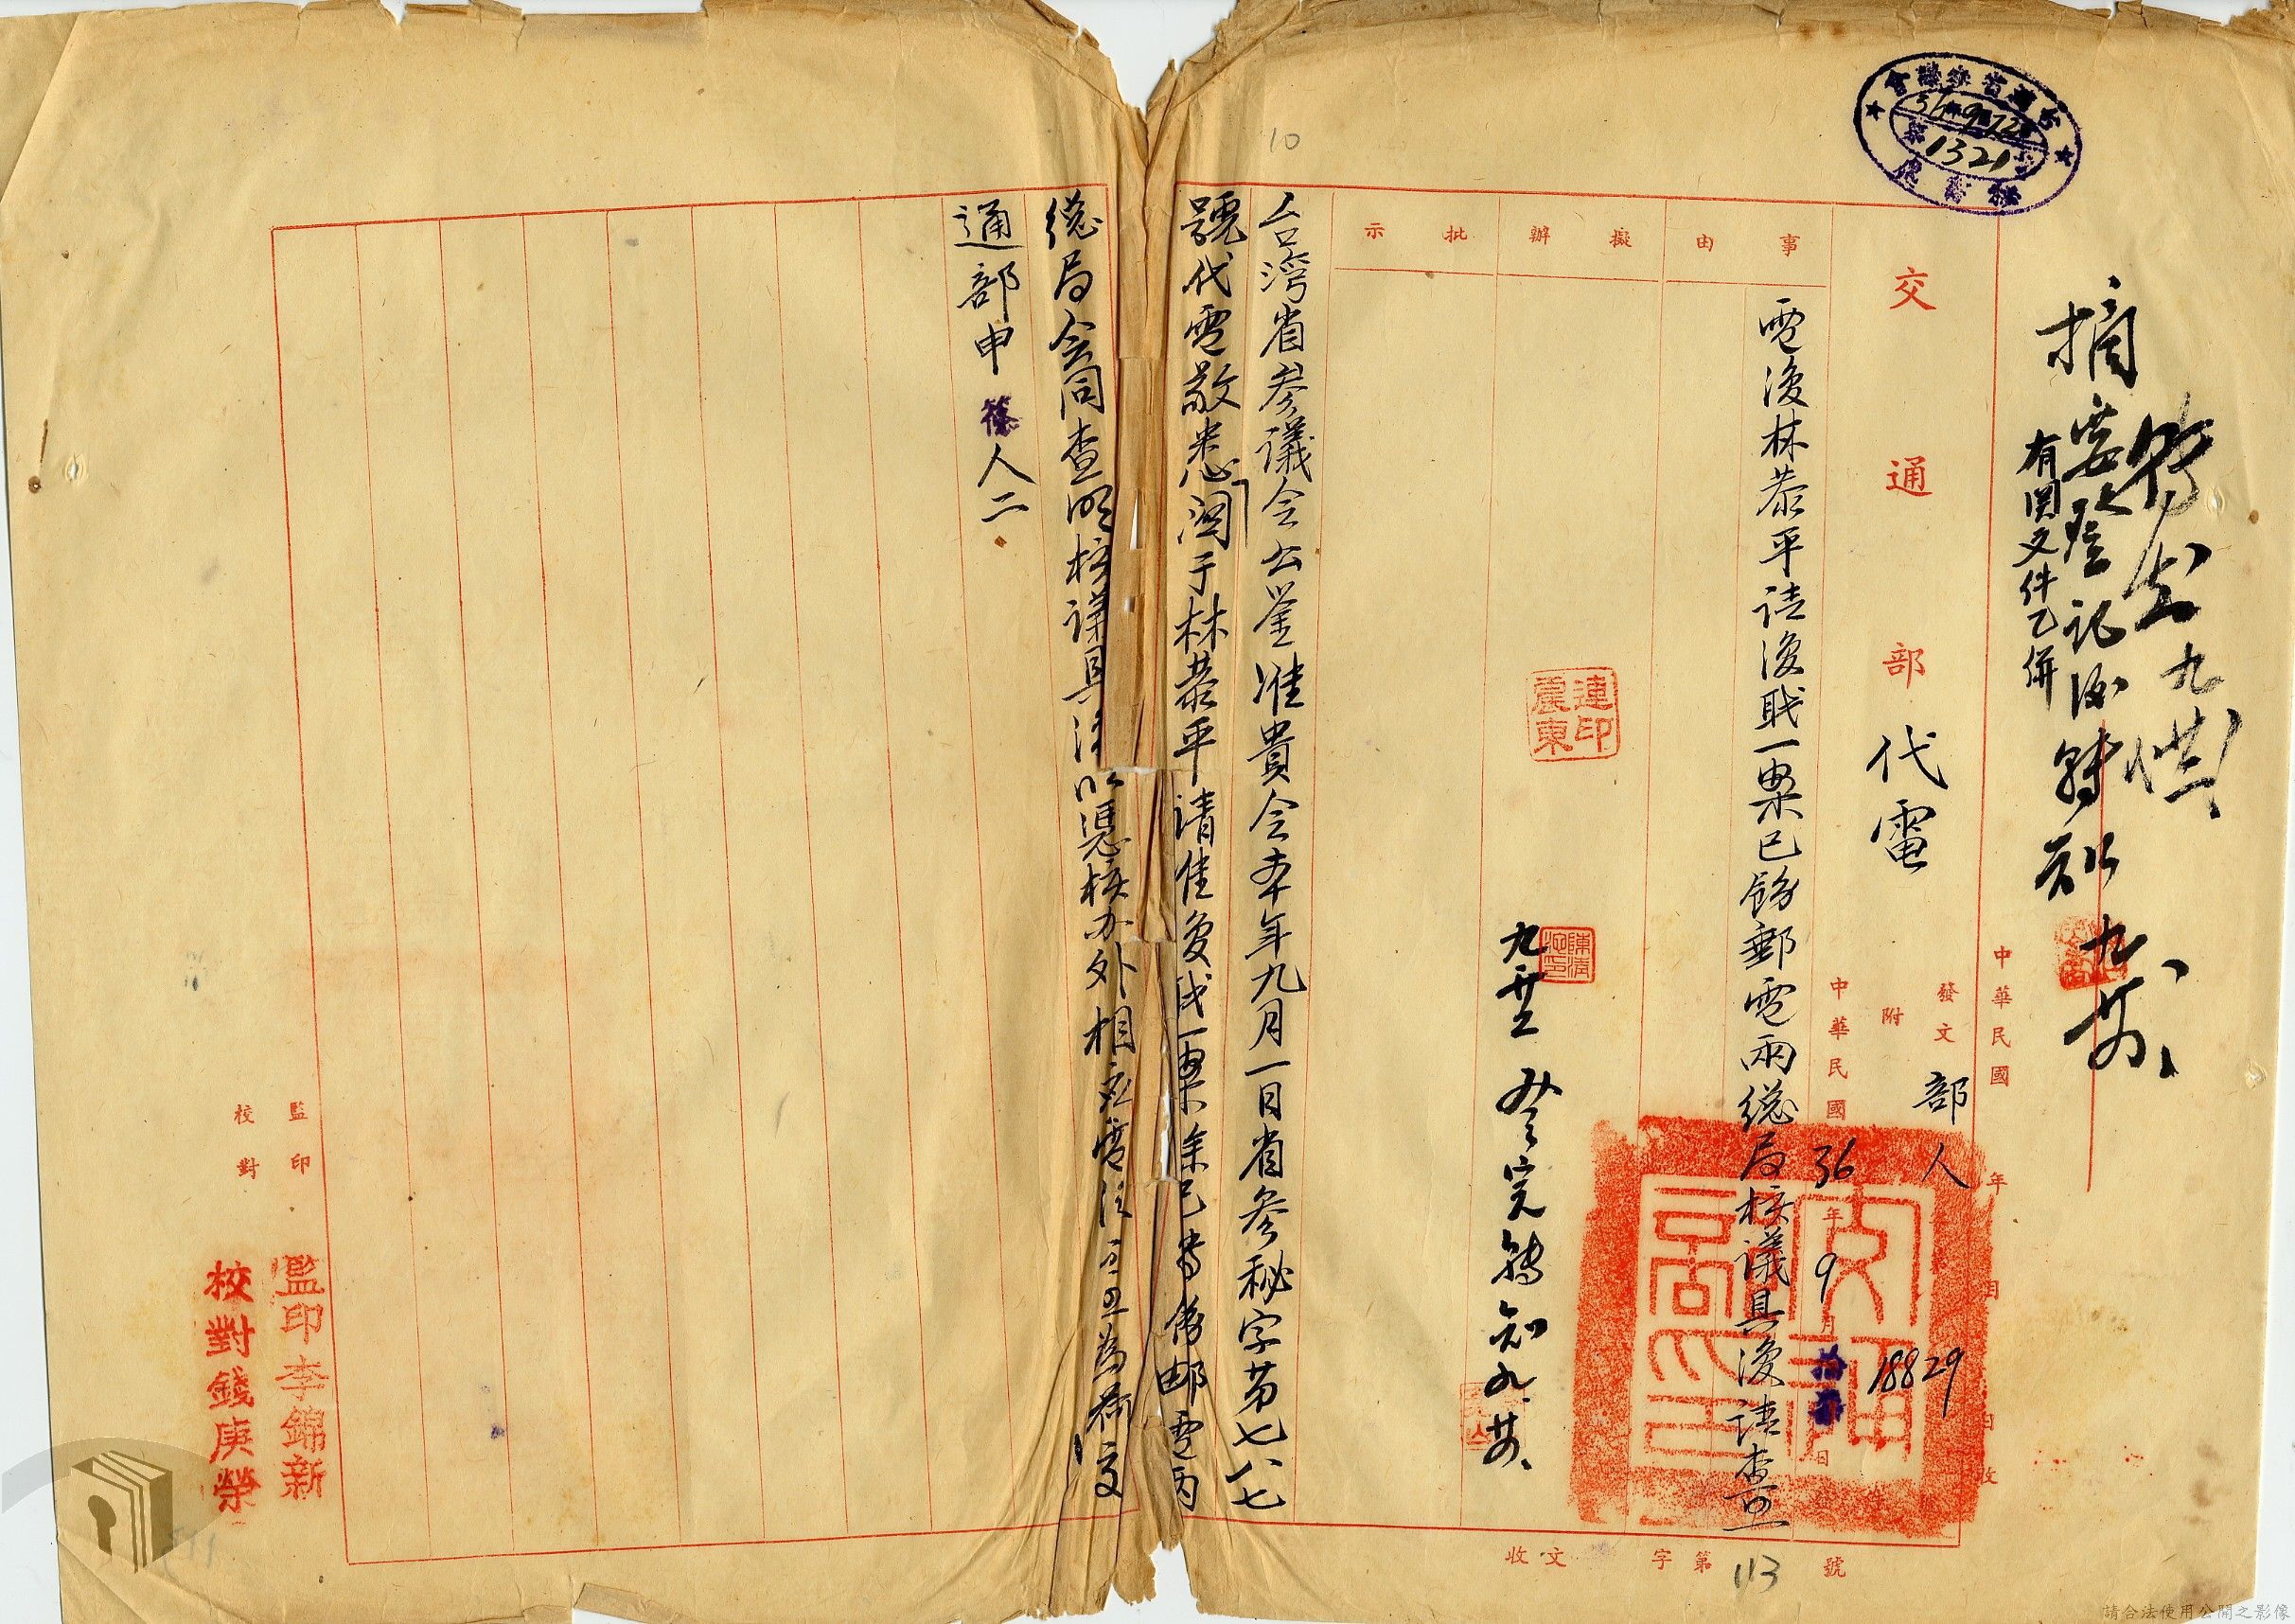 台灣省參議會
36 9 23
1321
秘書處
摘要登記後轉知
有関文件乙併
交通部代電
中華民國 年 月 日收
發文 部人 18829
附
中華民國36年9月 日
事由
電復林恭平請復職一案已飭郵電兩總局核議具復請查照
擬辦
批示
連震東印
台灣省參議会公鑒准貴会本年九月一日省參秘字第七八七
號代電敬悉関于林恭平請准復職一案除已電飭郵電兩
總局会同查明核議具復以憑核办外相應電復查照為荷交
通部申 人二
監印 監印李錦新
校對 校對錢庚榮
收文 字第 113 號
10
請合法使用公開之影像